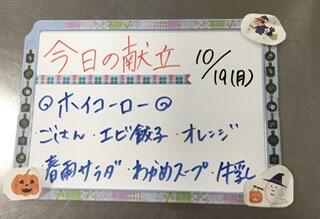 今日の献立
10/19(月)
◎ホイコーロー◎
・ごはん・エビ餃子・オレンジ
・春雨サラダ・わかめスープ・牛乳